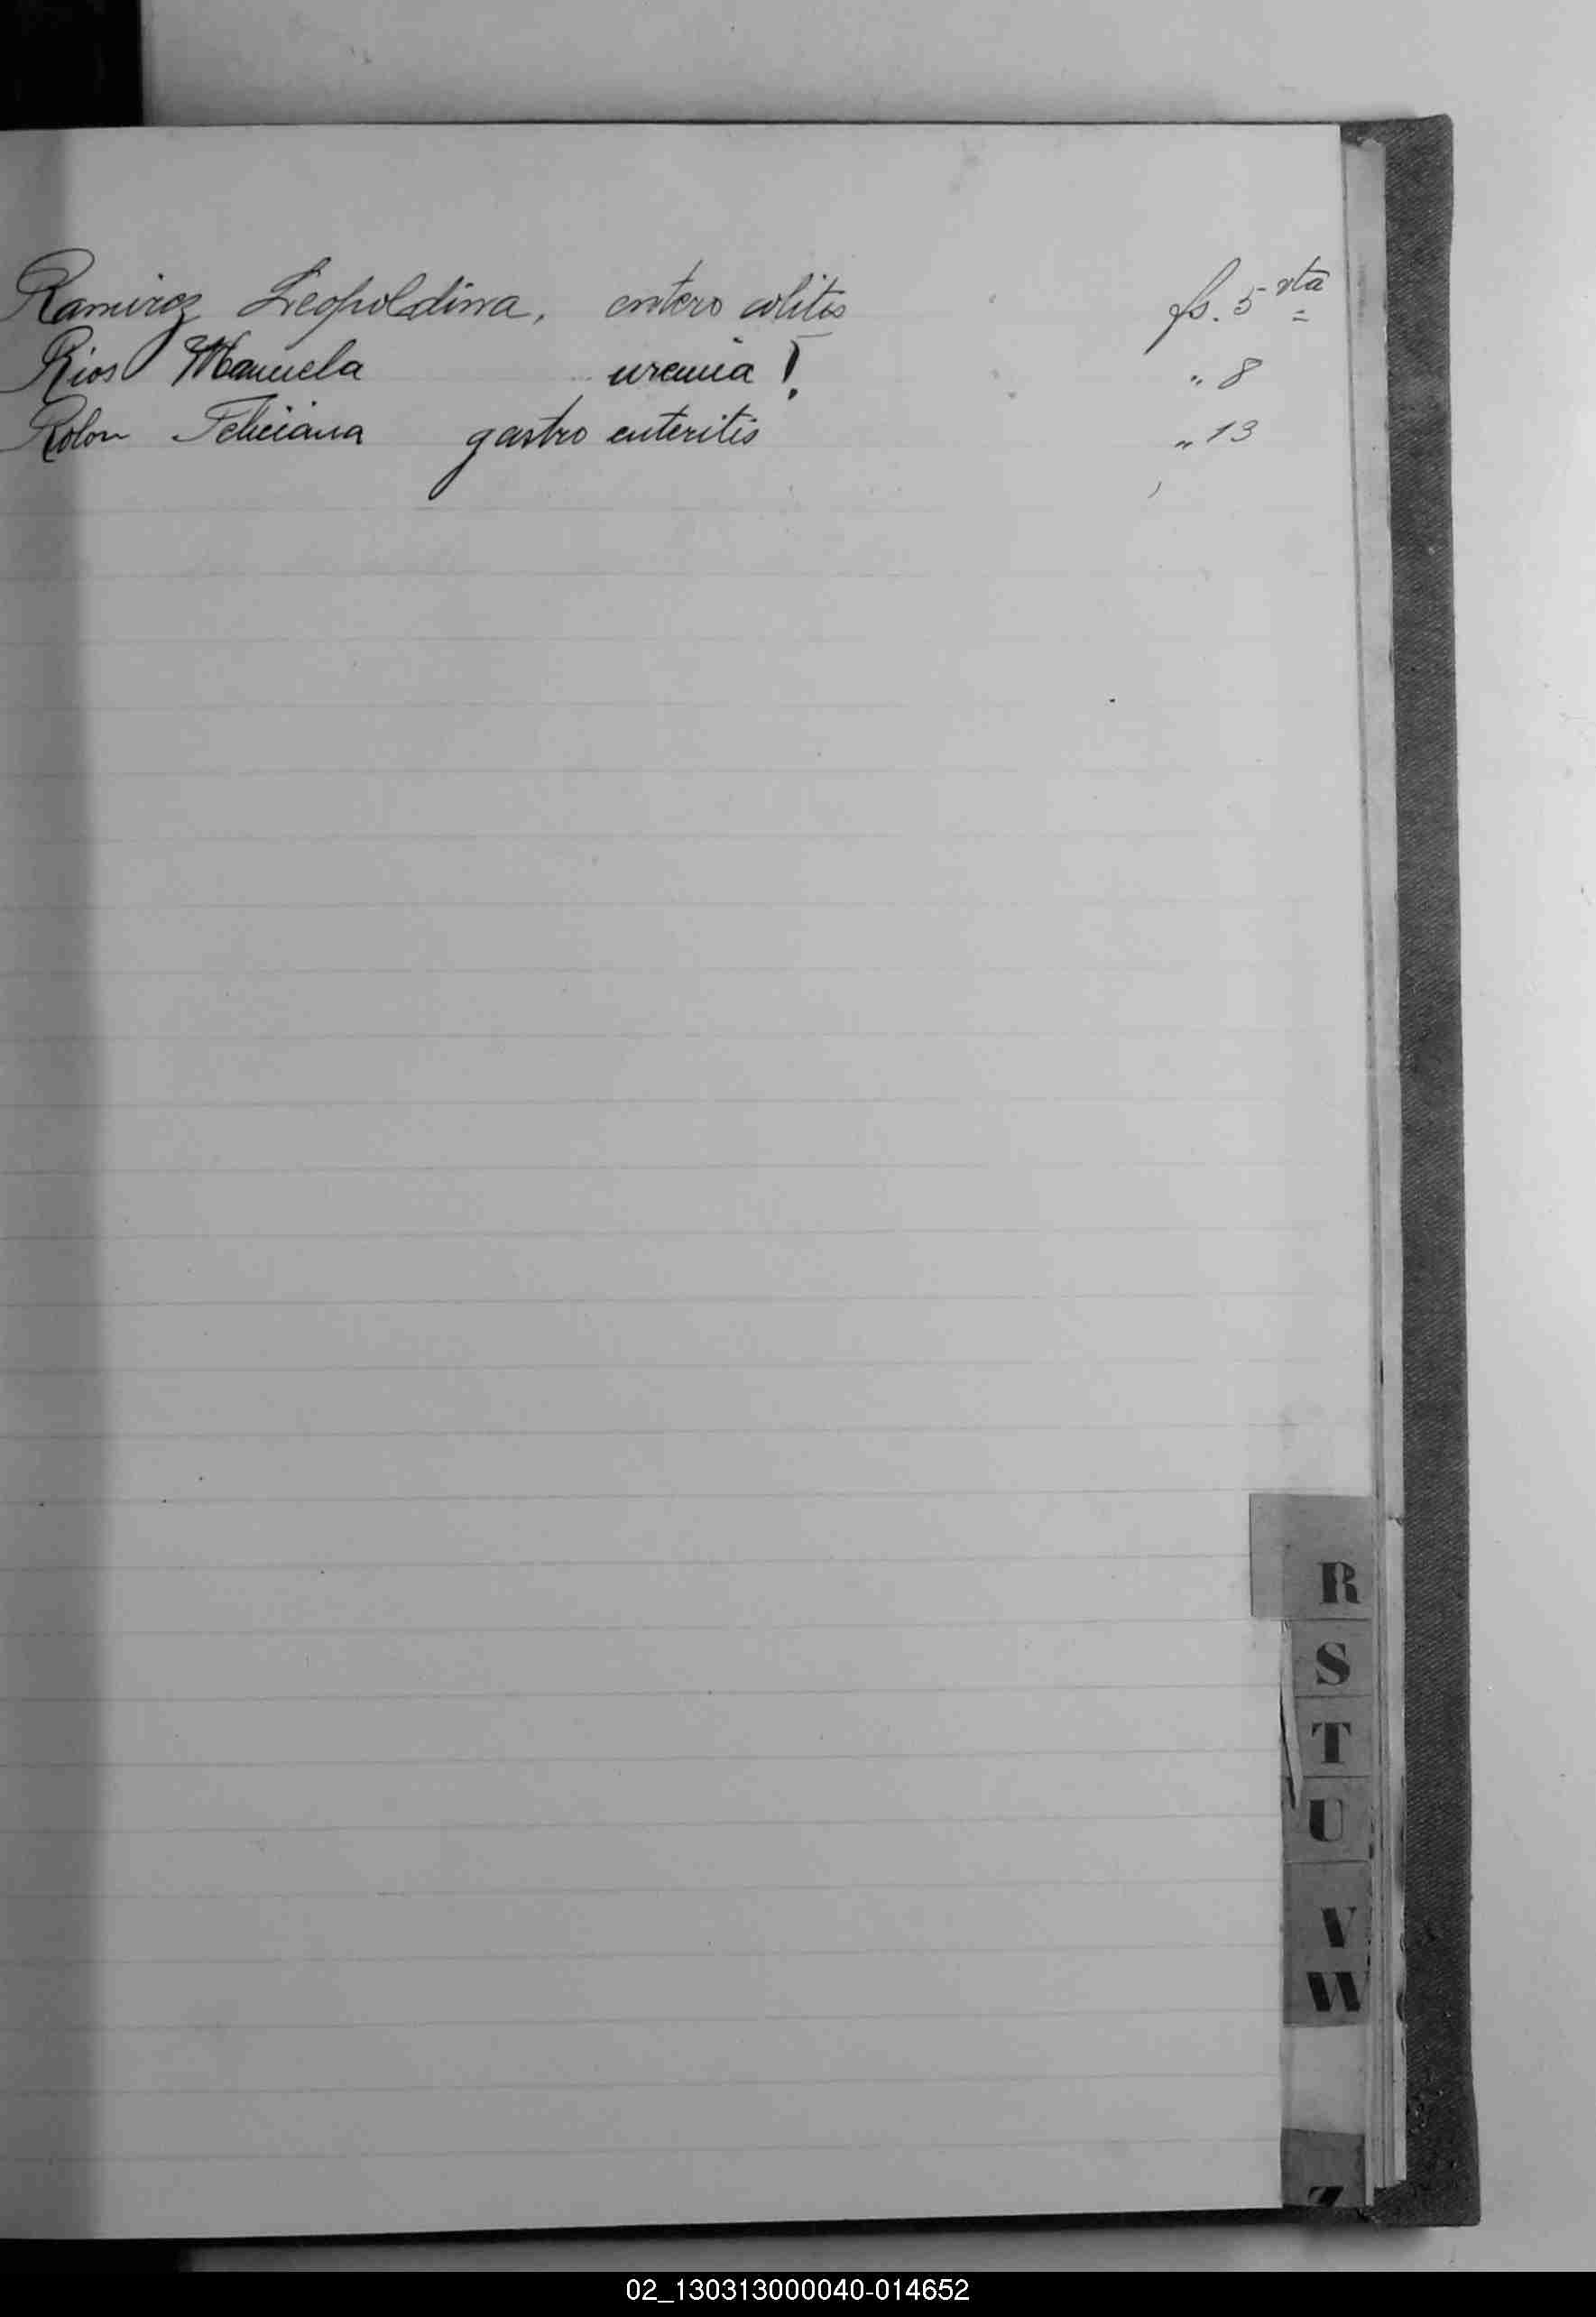 Ramirez Leopoldina, entero colitis fs. 5 vta
Rios Manuela uremia ! " 8
Rolon Feliciana gastro enteritis " 13
R
S
T
U
V
W
Z
02_130313000040-014652